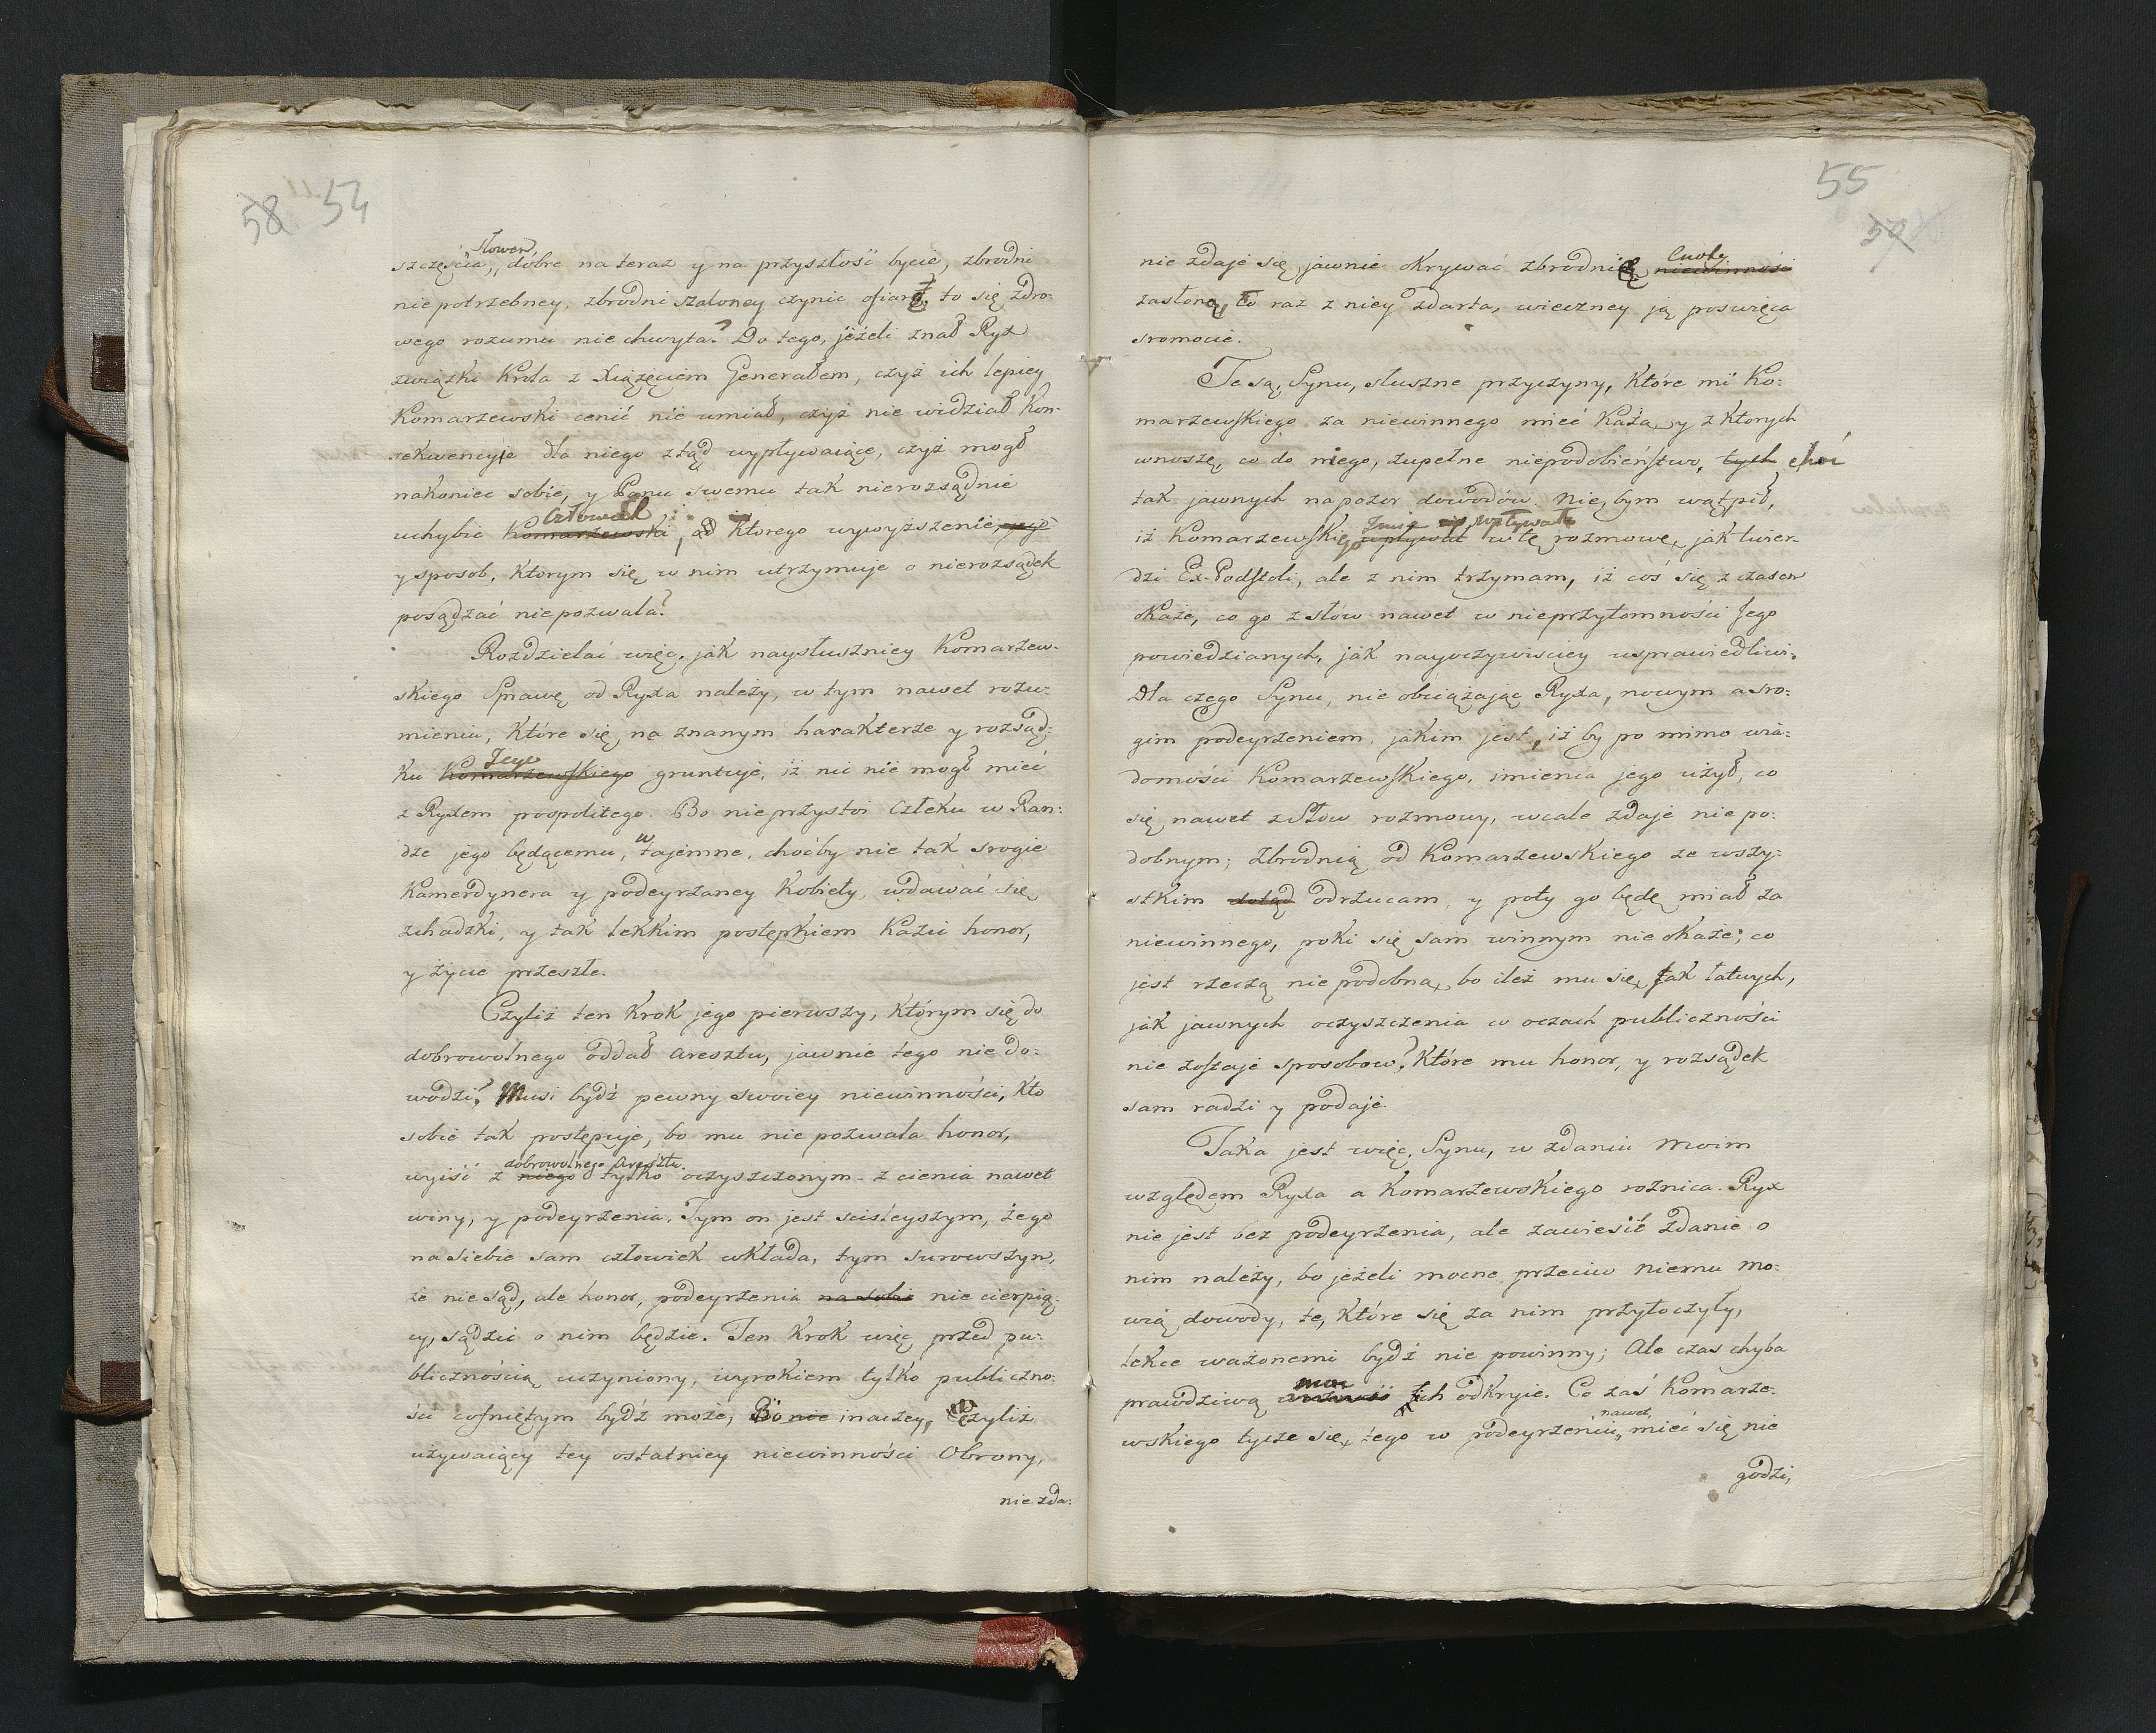 58 54
słowem
szczęścia, dobre na teraz y na przyszłość bycie, zbrodni
niepotrzebney, zbrodni szaloney czynić ofiarę, to się zdro-
wego rozumu nie chwyta? Do tego, jeżeli znał Ryx
związki Krola z Xiążęciem Generałem, czyż ich lepiey
Komarzewski cenić nie umiał, czyż nie widział kon-
sekwencyie dla niego ztąd wypływaiące, czyż mogł
nakoniec sobie, y Panu swemu tak nierozsądnie
Człowiek
uchybić Komarzewski, od ktorego wywyższenie jego
y sposob, ktorym się w nim utrzymuje o nierozsądek
posądzać niepozwala?
Rozdzielać więc, jak naysłuszniey Komarzew-
skiego Sprawę od Ryxa należy, w tym nawet rozu-
mieniu, Które się na znanym harakterze y rozsąd-
Jego
ku Komarzewskiego gruntuje, iż nic nie mogł mieć
z Ryxem pospolitego. Bo nie przystoi Człeku w Ran-
dze jego będącemu, w tajemne, choćby nie tak srogie
Kamerdynera y podeyrzaney Kobiety, wdawać się
zchadzki, y tak lekkim postępkiem Kazić honor,
y życie przeszłe.
Czyliż ten Krok jego pierwszy, Którym się do
dobrowolnego oddał aresztu, jawnie tego nie do-
wodzi? Musi bydź pewny swoiey niewinności, Kto
sobie tak postępuje, bo mu nie pozwala honor,
dobrowolnego aresztu
wyiść z niego tylko oczyszczonym z cienia nawet
winy, y podeyrzenia. Tym on jest scisleyszym, że go
na siebie sam człowiek wkłada, tym surowszym,
że nie sąd, ale honor, podeyrzenia na sobie nie cierpią-
cy, sądzić o nim będzie. Ten Krok więc przed pu-
blicznością uczyniony, wyrokiem tylko publiczno-
ści cofniętym bydź może, Bo nie inaczey, Czyliż
używaiący tey ostatniey niewinności Obrony,
nie zda-
55
59
Cnoty
nie zdaje się jawnie okrywać zbrodnię niewinności
zasłoną, co raz z niey zdarta, wieczney ją poswięca
sromocie.
Te są, Synu, słuszne przyczyny, Które mi Ko-
marzewskiego za niewinnego mieć Każą, y z Ktorych
wnoszę, co do niego, zupełne niepodobieństwo, tych choć
tak jawnych na pozor dowodów. Nie, bym wątpił,
Imię wpływało
iż Komarzewskiego wpływał w tę rozmowę, jak twier-
dzi Ex-Podstoli, ale z nim trzymam, iż coś się z czasem
okaże, co go z słow nawet w nieprzytomności Jego
powiedzianych, jak nayoczywiściey usprawiedliwi.
Dla czego Synu, nie obciążając Ryxa, nowym a sro-
gim podeyrzeniem, jakim jest, iż by po mimo wia-
domości Komarzewskiego, imienia jego użył, co
się nawet z słow rozmowy, wcale zdaje nie po-
dobnym; Zbrodnią od Komarzewskiego ze wszy-
stkim dotąd odrzucam, y poty go będę miał za
niewinnego, poki się sam winnym nie okaże; co
jest rzeczą nie podobną, bo ileż mu się, tak łatwych,
jak jawnych oczyszczenia w oczach publiczności
nie zostaje sposobow? Które mu honor, y rozsądek
sam radzi y podaje.
Taka jest więc, Synu, w zdaniu moim
względem Ryxa a Komarzewskiego rożnica. Ryx
nie jest bez podeyrzenia, ale zawiesić zdanie o
nim należy, bo jeżeli mocne przeciw niemu mo-
wią dowody, te, Które się za nim przytoczyły,
lekce ważonemi bydź nie powinny; Ale czas chyba
moc
prawdziwą ich odkryie. Co zaś Komarze-
nawet
wskiego tycze się, tego w podeyrzeniu, mieć się nie
godzi,